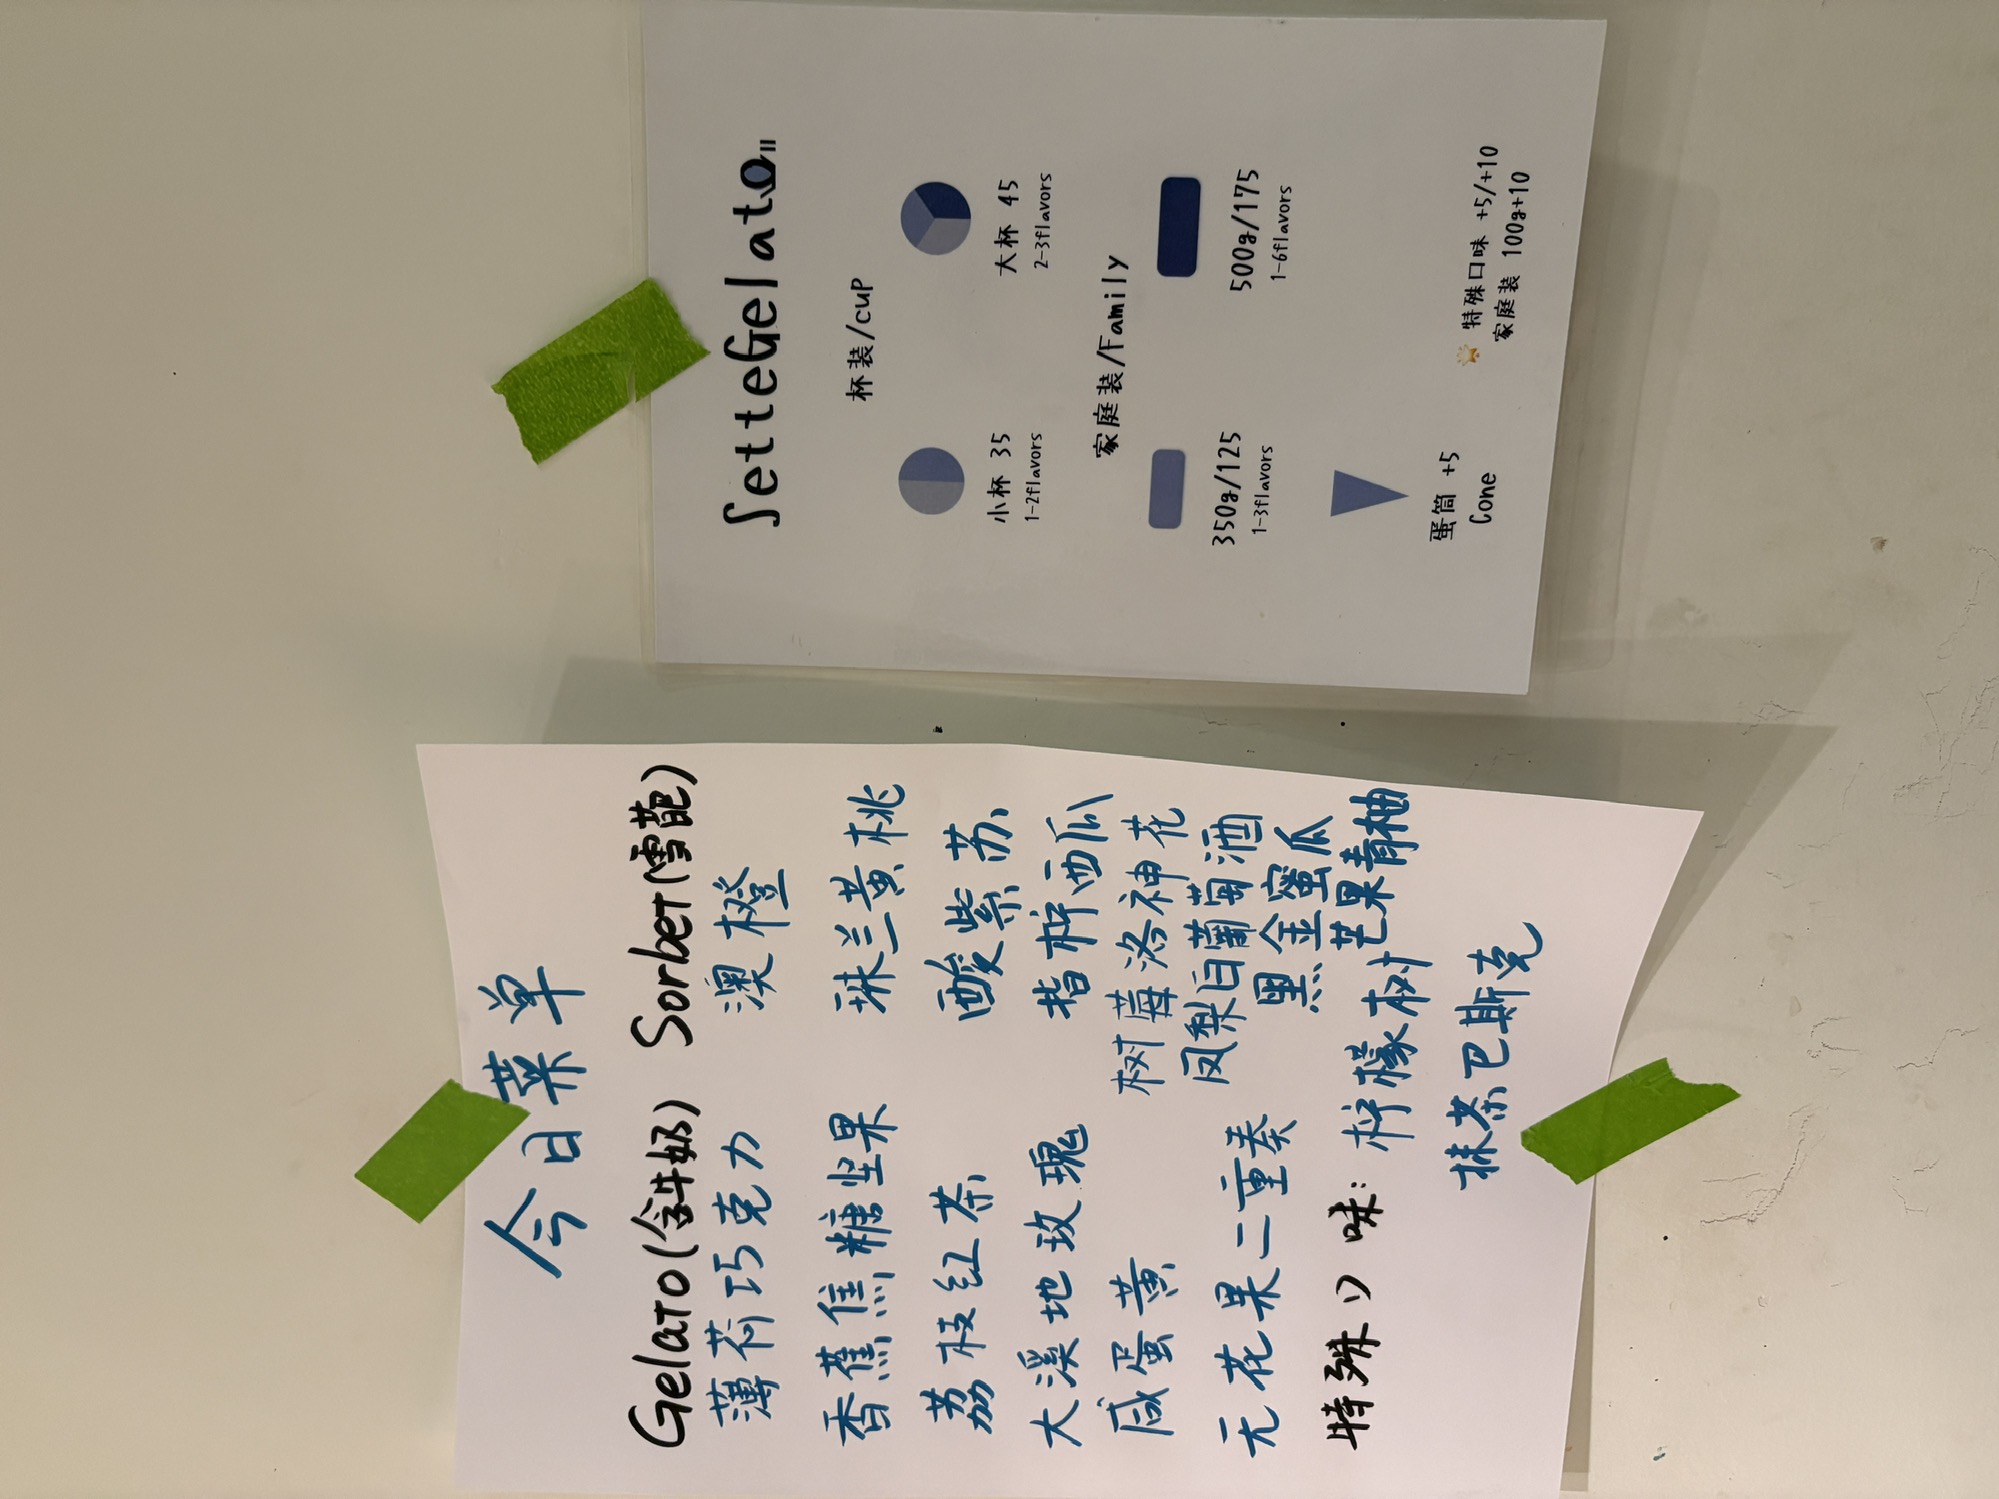 今日菜单
Gelato(含牛奶) Sorbet(雪葩)
薄荷巧克力 澳橙
香蕉焦糖坚果 琳兰黄桃
荔枝红茶 酸紫苏
大溪地玫瑰 指柠西瓜
咸蛋黄 树莓洛神花
无花果二重奏 凤梨白葡萄酒
黑金蜜瓜
芒果青柚
特殊口味: 柠檬树
抹茶巴斯克
SetteGelato
杯装/cup
小杯 35 大杯 45
1-2flavors 2-3flavors
家庭装/Family
350g/125 500g/175
1-3flavors 1-6flavors
蛋筒 +5
Cone
特殊口味 +5/+10
家庭装 100g+10